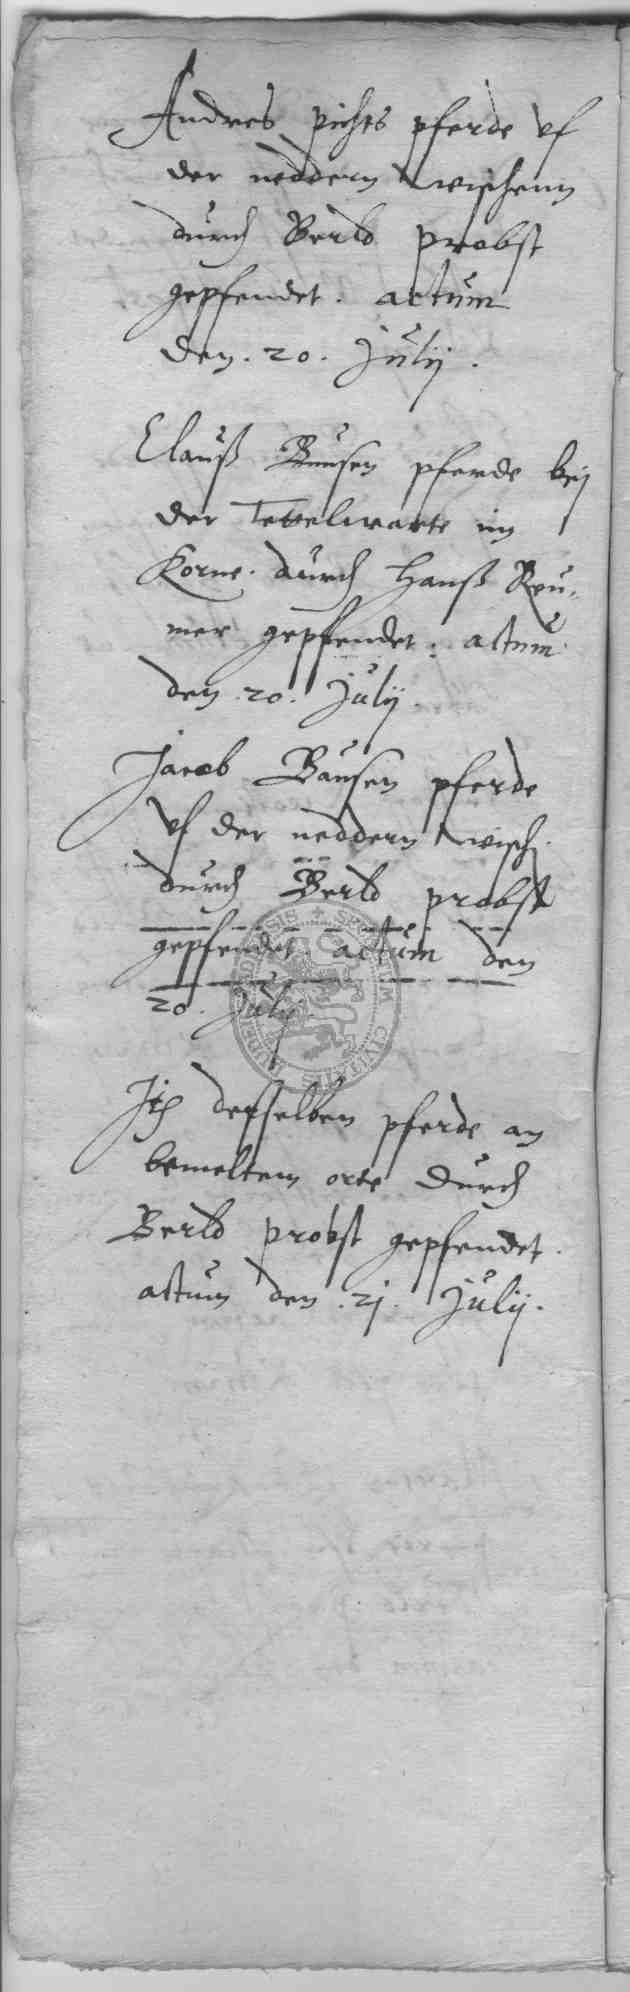 Andres pichts pferde vf
der neddern wischenn
durch Berld probst
gepfendet. actum
den. 20. Julij.
Clauß Bunsen pferde bej
der Tettelwarte im
Korne. durch Hanß Reu-
mer gepfendet: actum
den .20. Julij.
Jacob Bansen pferde
vf der neddern wisch.
durch Berld probst
gepfendet. actum den
20. Julij.
SECRETUM CIVITATIS
Jt deßselben pferde an
bemeltem orte durch
Berld probst gepfendet.
actum den .21. Julij.